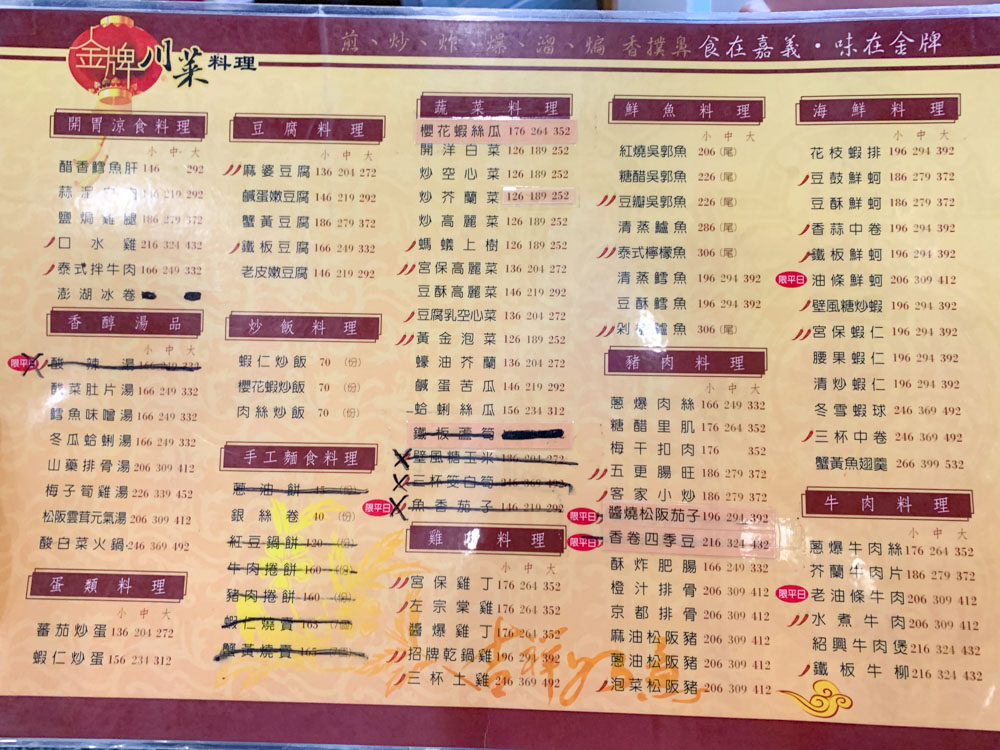 金牌川菜料理
煎、炒、炸、爆、溜、煸 香撲鼻 食在嘉義・味在金牌
開胃涼食料理
小 中 大
醋香鱈魚肝 146 292
蒜泥 146 219 292
鹽焗雞腿 186 279 372
口水雞 216 324 432
泰式拌牛肉 166 249 332
澎湖冰卷
香醇湯品
小 中 大
限平日 酸辣湯 166 249 332
酸菜肚片湯 166 249 332
鱈魚味噌湯 166 249 332
冬瓜蛤蜊湯 166 249 332
山藥排骨湯 206 309 412
梅子筍雞湯 226 339 452
松阪雲茸元氣湯 206 309 412
酸白菜火鍋 246 369 492
蛋類料理
小 中 大
蕃茄炒蛋 136 204 272
蝦仁炒蛋 156 234 312
豆腐料理
小 中 大
麻婆豆腐 136 204 272
鹹蛋嫩豆腐 146 219 292
蟹黃豆腐 186 279 372
鐵板豆腐 166 249 332
老皮嫩豆腐 146 219 292
炒飯料理
蝦仁炒飯 70 (份)
櫻花蝦炒飯 70 (份)
肉絲炒飯 70 (份)
手工麵食料理
蔥油餅 45 (份)
銀絲卷 40 (份)
紅豆鍋餅 130 (份)
牛肉捲餅 160 (份)
豬肉捲餅 160 (份)
蝦仁燒賣 165
蟹黃燒賣 165
蔬菜料理
櫻花蝦絲瓜 176 264 352
開洋白菜 126 189 252
炒空心菜 126 189 252
炒芥蘭菜 126 189 252
炒高麗菜 126 189 252
螞蟻上樹 126 189 252
宮保高麗菜 136 204 272
豆酥高麗菜 146 219 292
豆腐乳空心菜 136 204 272
黃金泡菜 126 189 252
蠔油芥蘭 136 204 272
鹹蛋苦瓜 146 219 292
蛤蜊絲瓜 156 234 312
鐵板蘆筍
壁風糖玉米 136 204 272
三杯筊白筍 246 369 492
限平日 魚香茄子 146 219 292
雞 料理
小 中 大
宮保雞丁 176 264 352
左宗棠雞 176 264 352
醬爆雞丁 176 264 352
招牌乾鍋雞 196 294 392
三杯土雞 246 369 492
鮮魚料理
小 中 大
紅燒吳郭魚 206 (尾)
糖醋吳郭魚 226 (尾)
豆瓣吳郭魚 226 (尾)
清蒸鱸魚 286 (尾)
泰式檸檬魚 306 (尾)
清蒸鱈魚 196 294 392
豆酥鱈魚 196 294 392
剁椒鱸魚 306 (尾)
豬肉料理
小 中 大
蔥爆肉絲 166 249 332
糖醋里肌 176 264 352
梅干扣肉 176 352
五更腸旺 186 279 372
客家小炒 186 279 372
限平日 醬燒松阪茄子 196 294 392
限平日 香卷四季豆 216 324 432
酥炸肥腸 166 249 332
橙汁排骨 206 309 412
京都排骨 206 309 412
麻油松阪豬 206 309 412
蔥油松阪豬 206 309 412
泡菜松阪豬 206 309 412
海鮮料理
小 中 大
花枝蝦排 196 294 392
豆鼓鮮蚵 186 279 372
豆酥鮮蚵 186 279 372
香蒜中卷 196 294 392
鐵板鮮蚵 196 294 392
限平日 油條鮮蚵 206 309 412
壁風糖炒蝦 196 294 392
宮保蝦仁 196 294 392
腰果蝦仁 196 294 392
清炒蝦仁 196 294 392
冬雪蝦球 246 369 492
三杯中卷 246 369 492
蟹黃魚翅羹 266 399 532
牛肉料理
小 中 大
蔥爆牛肉絲 176 264 352
芥蘭牛肉片 186 279 372
限平日 老油條牛肉 206 309 412
水煮牛肉 206 309 412
紹興牛肉煲 216 324 432
鐵板牛柳 216 324 432